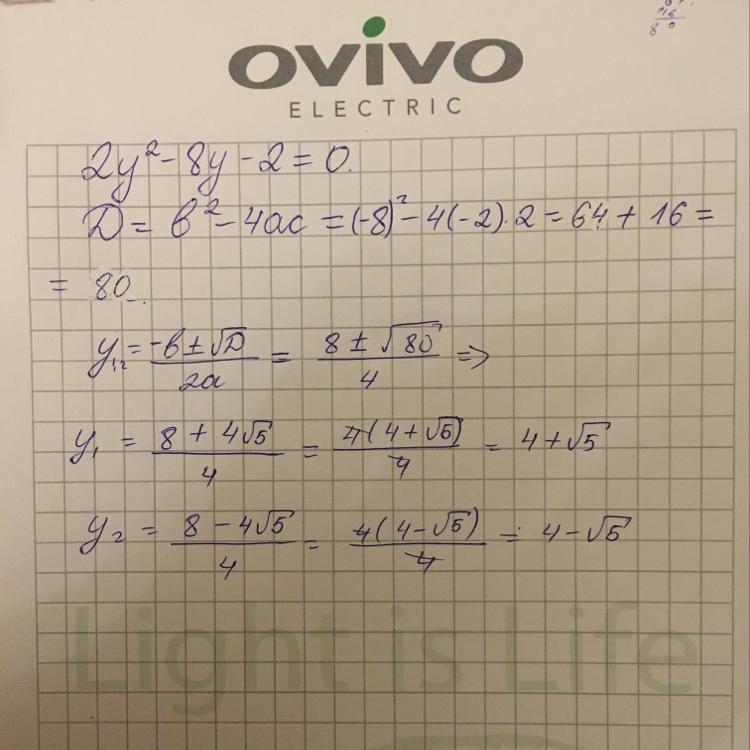 OVIVO
ELECTRIC
2y² - 8y - 2 = 0.
D = b² - 4ac = (-8)² - 4(-2)·2 = 64 + 16 =
= 80.
y₁,₂ = (-b ± √D)/(2a) = (8 ± √80)/4 =>
y₁ = (8 + 4√5)/4 = 4(4 + √5)/4 = 4 + √5
y₂ = (8 - 4√5)/4 = 4(4 - √5)/4 = 4 - √5
Light is Life